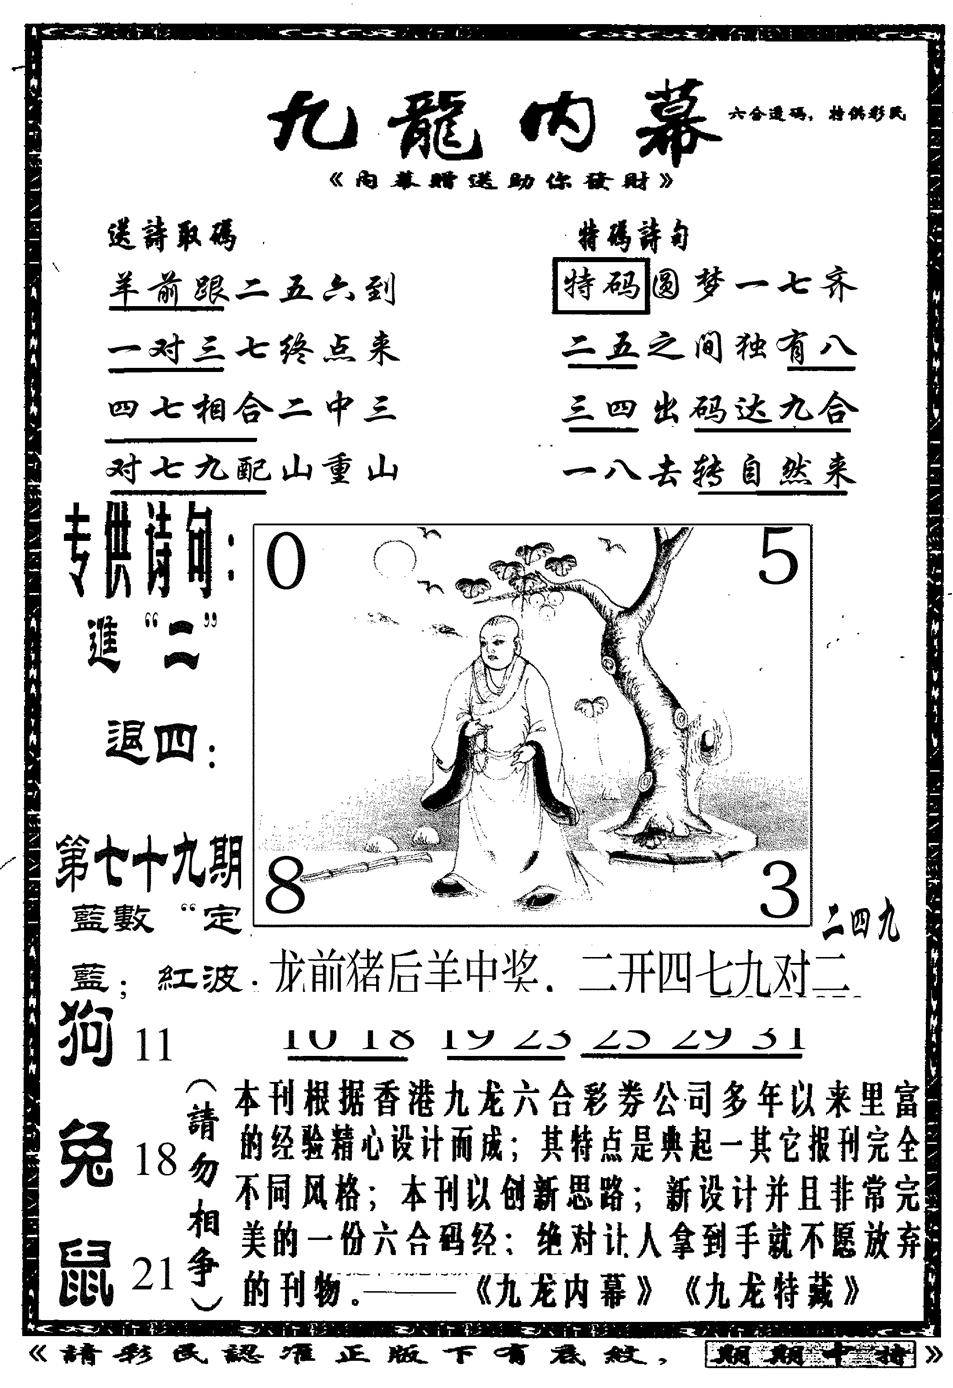 九龍内幕
六合透码，特供彩民
《内幕贈送助你發財》
送詩取碼
羊前跟二五六到
一对三七终点来
四七相合二中三
对七九配山重山
特碼詩句
特码圆梦一七齐
二五之间独有八
三四出码达九合
一八去转自然来
专供诗句：
進“二”
退四：
第七十九期
藍數“定
藍；紅波．
0 5
8 3
二四九
龙前猪后羊中奖．二开四七九对二
10 18 19 23 25 29 31
狗 11
兔 18
鼠 21
（請勿相争）
本刊根据香港九龙六合彩券公司多年以来里富
的经验精心设计而成；其特点是典起一其它报刊完全
不同风格；本刊以创新思路；新设计并且非常完
美的一份六合码经；绝对让人拿到手就不愿放弃
的刊物．——《九龙内幕》《九龙特藏》
《請彩民認准正版下有底紋，期期中特》